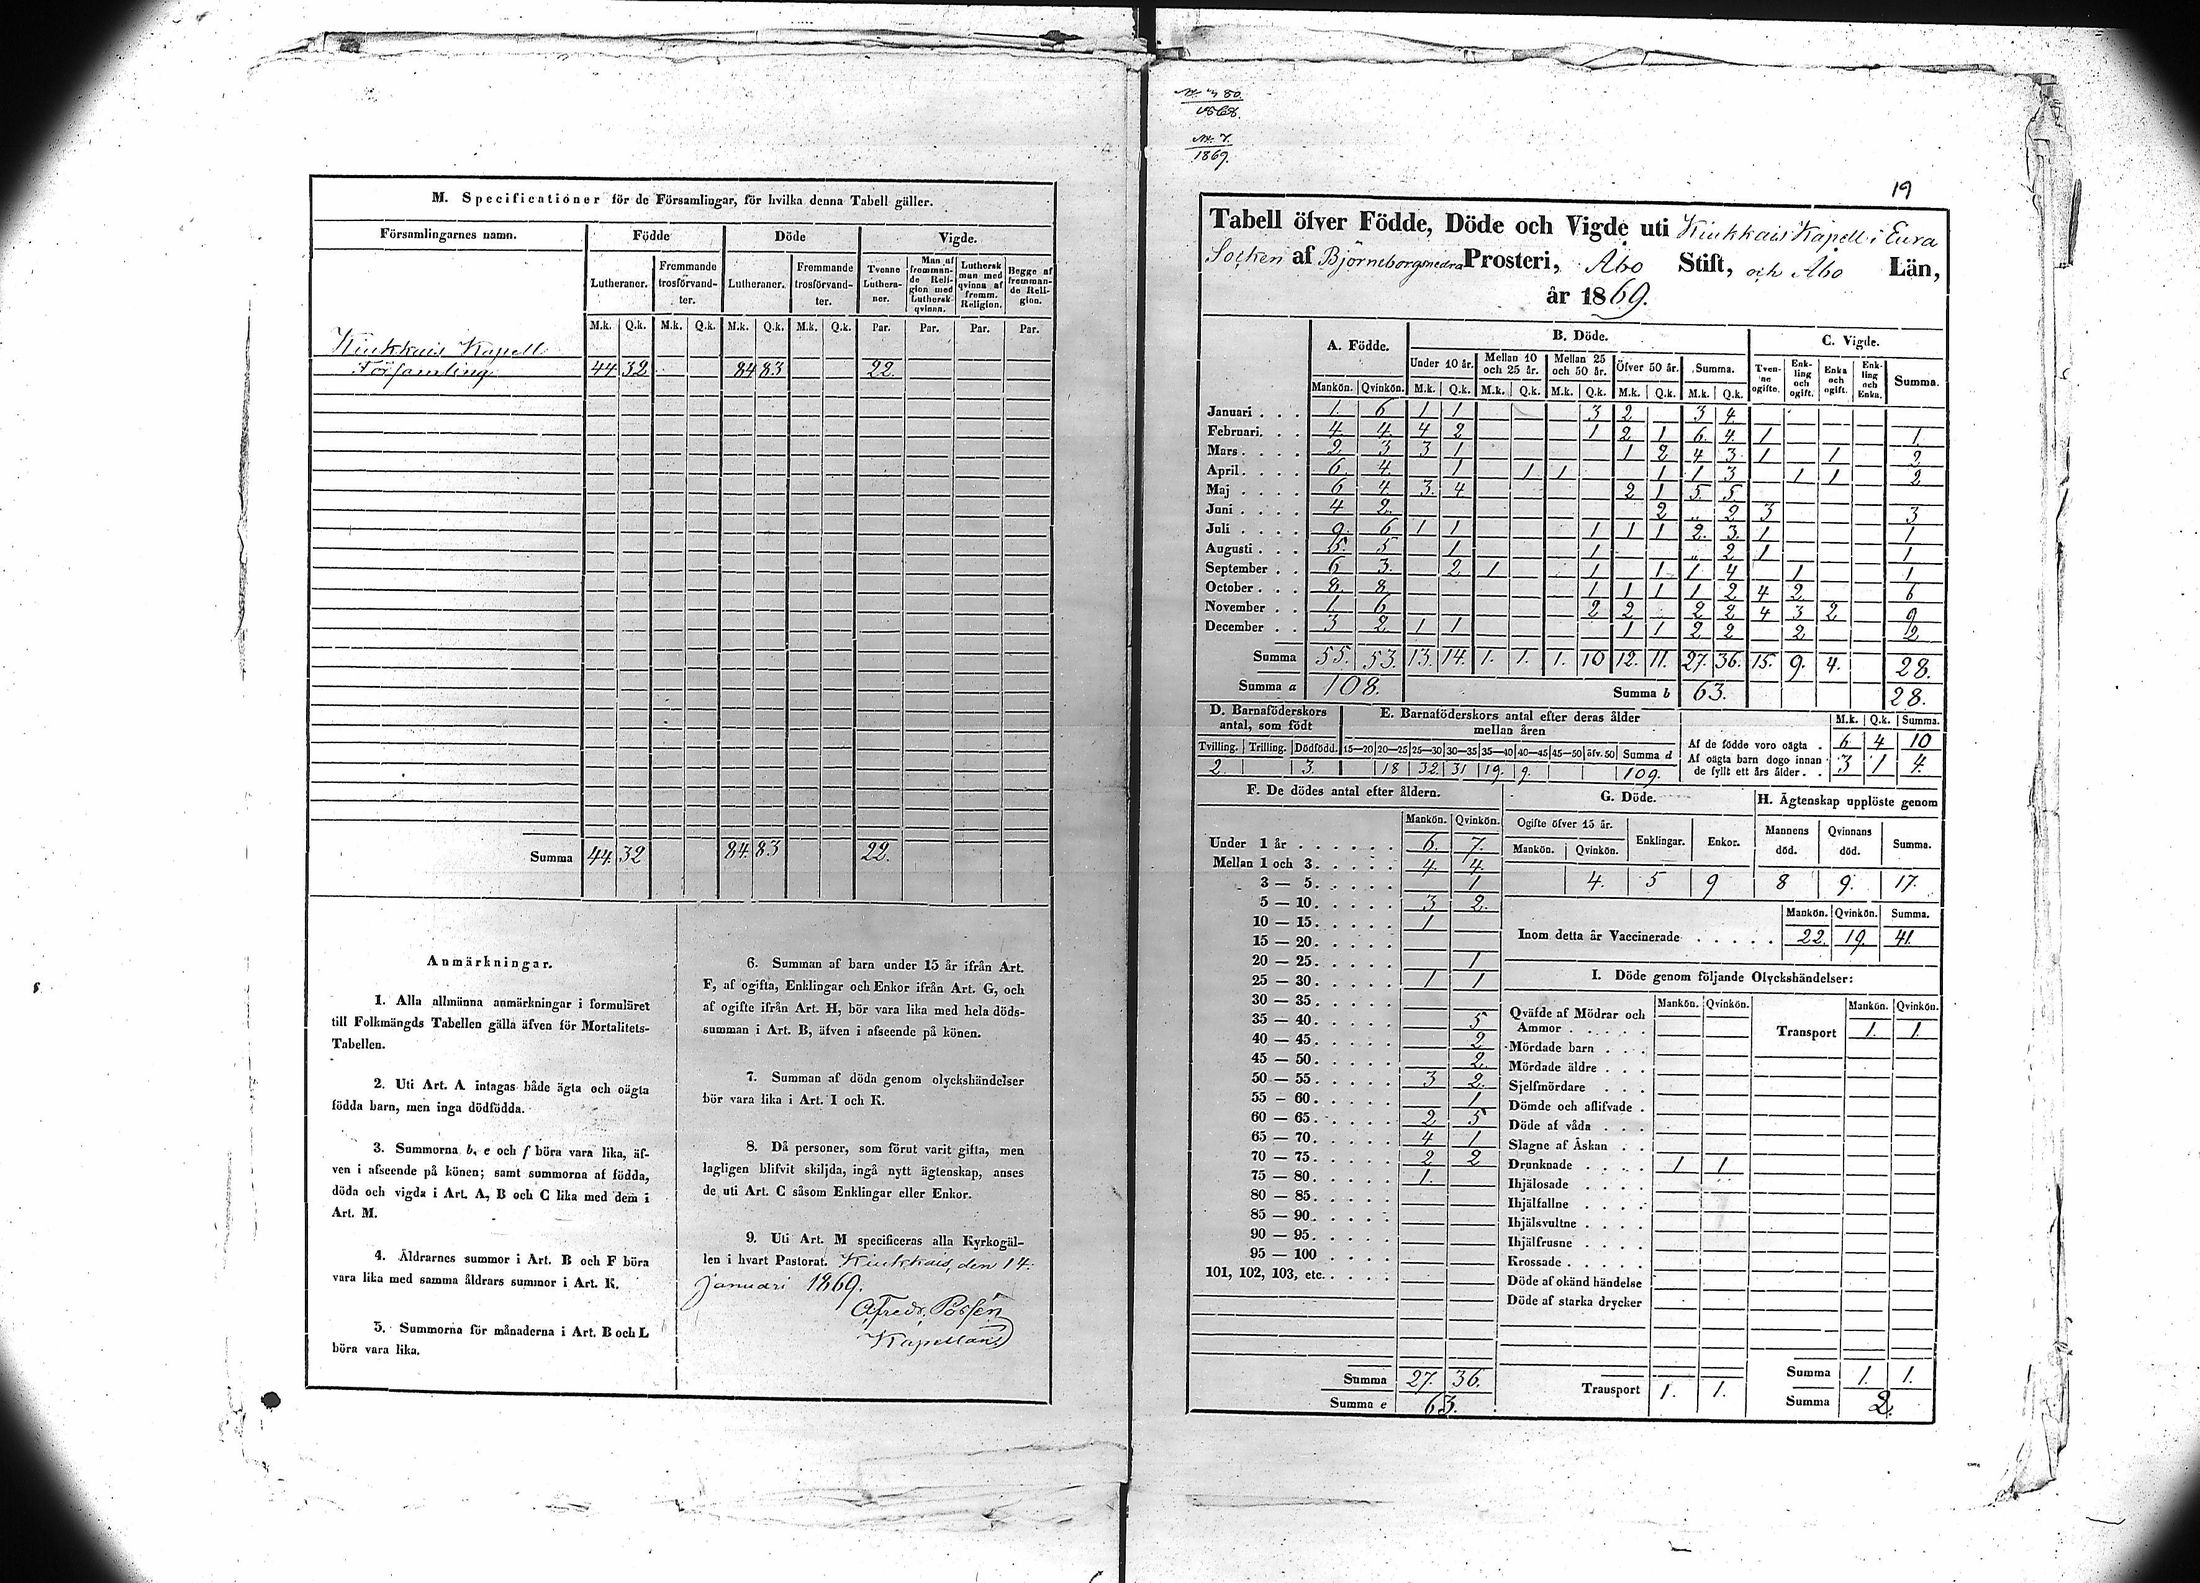 M. Specificationer för de Församlingar, för hvilka denna Tabell gäller.
Församlingarnes namn. Födde Döde Vigde.
Lutheraner. Fremmande trosförvandter. Lutheraner. Fremmande trosförvandter. Tvenne Lutheraner. Man af fremmande Religion med Luthersk qvinna. Luthersk man med qvinna af fremm. Religion. Begge af fremmande Religion.
M.k. Q.k. M.k. Q.k. M.k. Q.k. M.k. Q.k. Par. Par. Par. Par.
Kiukkais Kapell
Församling 44 32 84 83 22.
Summa 44. 32 84. 83 22.
Anmärkningar.
1. Alla allmänna anmärkningar i formuläret
till Folkmängds Tabellen gälla äfven för Mortalitets-
Tabellen.
2. Uti Art. A intagas både ägta och oägta
födda barn, men inga dödfödda.
3. Summorna b, e och f böra vara lika, äf-
ven i afseende på könen; samt summorna af födda,
döda och vigda i Art. A, B och C lika med dem i
Art. M.
4. Åldrarnes summor i Art. B och F böra
vara lika med samma åldrars summor i Art. K.
5. Summorna för månaderna i Art. B och L
böra vara lika.
6. Summan af barn under 15 år ifrån Art.
F, af ogifta, Enklingar och Enkor ifrån Art. G, och
af ogifte ifrån Art. H, bör vara lika med hela döds-
summan i Art. B, äfven i afseende på könen.
7. Summan af döda genom olyckshändelser
bör vara lika i Art. I och K.
8. Då personer, som förut varit gifta, men
lagligen blifvit skiljda, ingå nytt ägtenskap, anses
de uti Art. C såsom Enklingar eller Enkor.
9. Uti Art. M specificeras alla Kyrkogäl-
len i hvart Pastorat. Kiukkais, den 14.
januari 1869.
Kapellan
1868.
1869.
19
Tabell öfver Födde, Döde och Vigde uti Kiukkais Kapell i Eura
Socken af Björneborgs nedra Prosteri, Åbo Stift, och Åbo Län,
år 1869.
A. Födde. B. Döde. C. Vigde.
Under 10 år. Mellan 10 och 25 år. Mellan 25 och 50 år. Öfver 50 år. Summa. Tvenne ogifte. Enkling och ogift. Enka och ogift. Enkling och Enka. Summa.
Mankön. Qvinkön. M.k. Q.k. M.k. Q.k. M.k. Q.k. M.k. Q.k. M.k. Q.k.
Januari . . . 1. 6 1 1 3 2 3 4
Februari. . . 4 4 4 2 1 2 1 6. 4. 1 1.
Mars . . . . 2 3 3 1 1 2 4 3 1 1 2
April . . . . 6. 4 1 1 1 1 1 3 1 1 2
Maj . . . . 6 4 3. 4 2 1 5. 5
Juni . . . . 4 2 2 „ 2 3 3
Juli . . . . 9. 6 1 1 1 1 1 2. 3. 1 1
Augusti . . . 5. 5 1 1 „ 2 1 1
September . . 6 3. 2 1 1 1 1 4 1 1
October . . . 8. 8 1 1 1 1 2 4 2 6
November . . 1. 6 2 2 2 2 4 3 2 9
December . . 3 2 1 1 1 1 2 2 2 2
Summa 55. 53. 13. 14. 1. 1. 1. 10 12. 11. 27. 36. 15. 9. 4. 28.
Summa a 108. Summa b 63. 28.
D. Barnaföderskors antal, som födt
E. Barnaföderskors antal efter deras ålder mellan åren
M.k. Q.k. Summa.
Tvilling. Trilling. Dödfödd. 15—20 20—25 25—30 30—35 35—40 40—45 45—50 öfv. 50 Summa d
2. 3. 18 32. 31 19. 9. 109.
Af de födde voro oägta . 6. 4 10
Af oägta barn dogo innan de fyllt ett års ålder . . 3 1 4.
F. De dödes antal efter åldern.
Mankön. Qvinkön.
Under 1 år . . . . . . 6. 7.
Mellan 1 och 3. . . . . 4. 4.
3 — 5. . . . . 1
5 — 10. . . . . 3 2.
10 — 15. . . . . 1
15 — 20. . . . .
20 — 25. . . . . 1
25 — 30. . . . . 1 1
30 — 35. . . . .
35 — 40. . . . . 5
40 — 45. . . . . 2
45 — 50. . . . . 2.
50 — 55. . . . . 3 2.
55 — 60. . . . . 1
60 — 65. . . . . 2 5
65 — 70. . . . . 4 1
70 — 75. . . . . 2 2
75 — 80. . . . . 1.
80 — 85. . . . .
85 — 90. . . . .
90 — 95. . . . .
95 — 100 . . . .
101, 102, 103, etc. . . . .
Summa 27. 36.
Summa e 63.
G. Döde.
Ogifte öfver 15 år. Enklingar. Enkor.
Mankön. Qvinkön.
4. 5 9
H. Ägtenskap upplöste genom
Mannens död. Qvinnans död. Summa.
8 9. 17.
Mankön. Qvinkön. Summa.
Inom detta år Vaccinerade . . . . . 22. 19. 41.
I. Döde genom följande Olyckshändelser:
Mankön. Qvinkön. Mankön. Qvinkön.
Qväfde af Mödrar och
Ammor . . . . . Transport 1. 1.
Mördade barn . . .
Mördade äldre . . .
Sjelfmördare . . .
Dömde och aflifvade .
Döde af våda . . .
Slagne af Åskan . .
Drunknade . . . . 1 1.
Ihjälosade . . . .
Ihjälfallne . . . .
Ihjälsvultne . . . .
Ihjälfrusne . . . .
Krossade . . . . .
Döde af okänd händelse
Döde af starka drycker
Summa 1. 1.
Transport 1. 1. Summa 2.